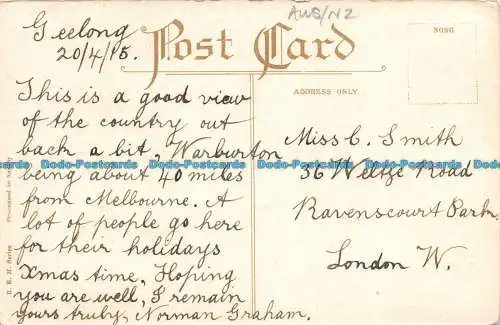 AUS/NZ
Geelong
20/4/15.
Post Card
NOSG
ADDRESS ONLY
This is a good view
of the country out
back a bit, Warburton
being about 40 miles
from Melbourne. A
lot of people go here
for their holidays
Xmas time, Hoping
you are well, I remain
yours truly, Norman Graham.
Miss C. Smith
36 Weltje Road
Ravenscourt Park,
London W.
Dodo-Postcards Dodo-Postcards Dodo-Postcards Dodo-Postcards Dodo-Postcards
Series
Processed in